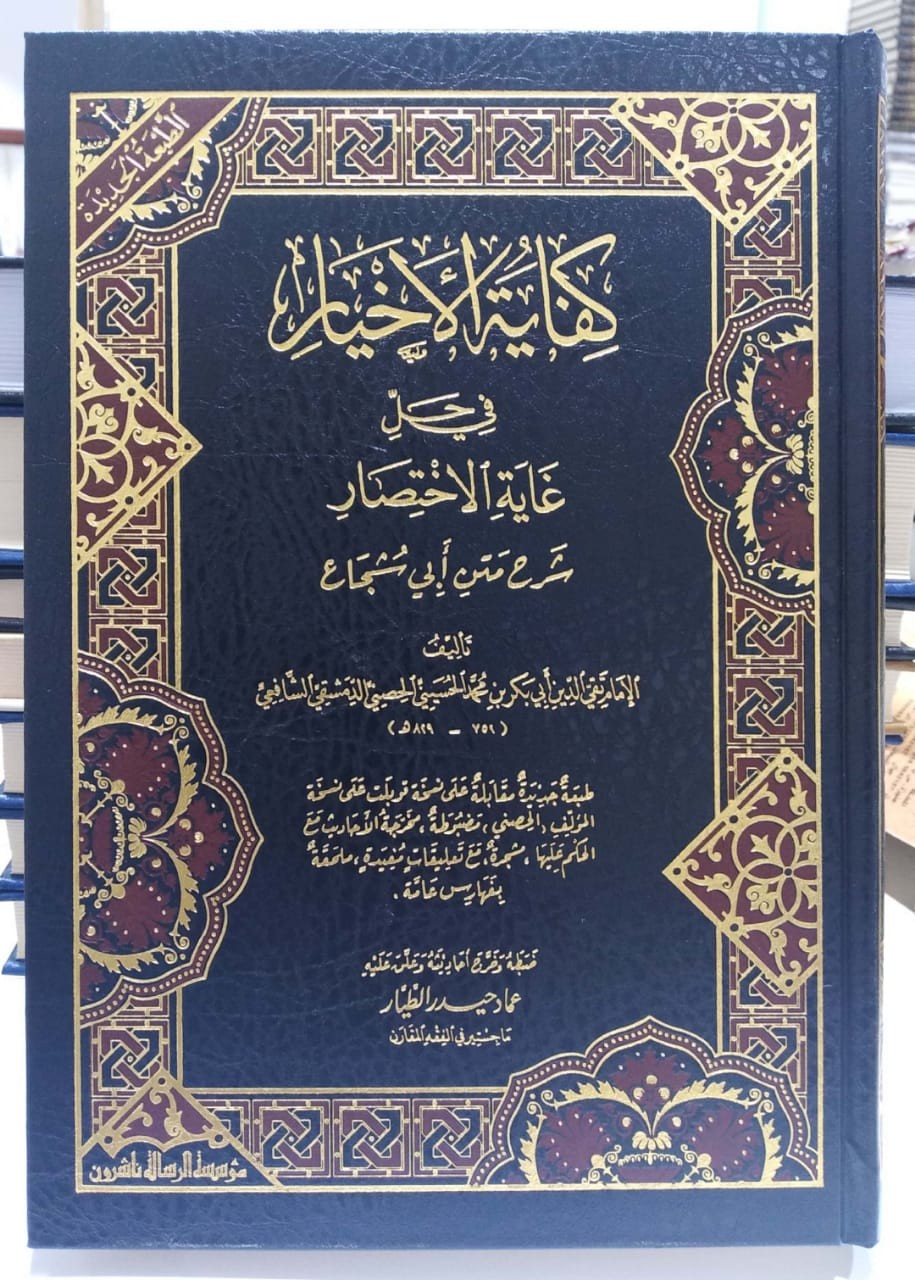 الطبعة الجديدة
كِفَايَةُ الأَخْيَارِ
فِي حَلِّ
غَايَةِ الِاخْتِصَارِ
شَرْح مَتْنِ أَبِي شُجَاع
تَأليفُ
الإمَام تقي الدين أبي بكر بن محمد الحُسَيني الحِصني الدمشقي الشافعي
(٧٥٢ - ٨٢٩ هـ)
طبعَةٌ جَدِيْدَةٌ مُقَابَلَةٌ عَلَى نسْخَة قوبلت عَلى نسْخَة
المؤلف (الحصني)، مَضبُوطَةٌ، مخرجة الأحاديث مَع
الحكم عَليهَا، مشجرة، مَعَ تَعليقَاتٍ مُفيدَةٍ، ملحقَةٌ
بفهَارس عَامَّة.
ضَبَطَهُ وَخَرَّجَ أَحَاديثَهُ وَعَلَّقَ عَلَيْه
عماد حيدر الطيّار
مَاجستير في الفِقه المقَارن
مؤسسة الرسالة ناشرون